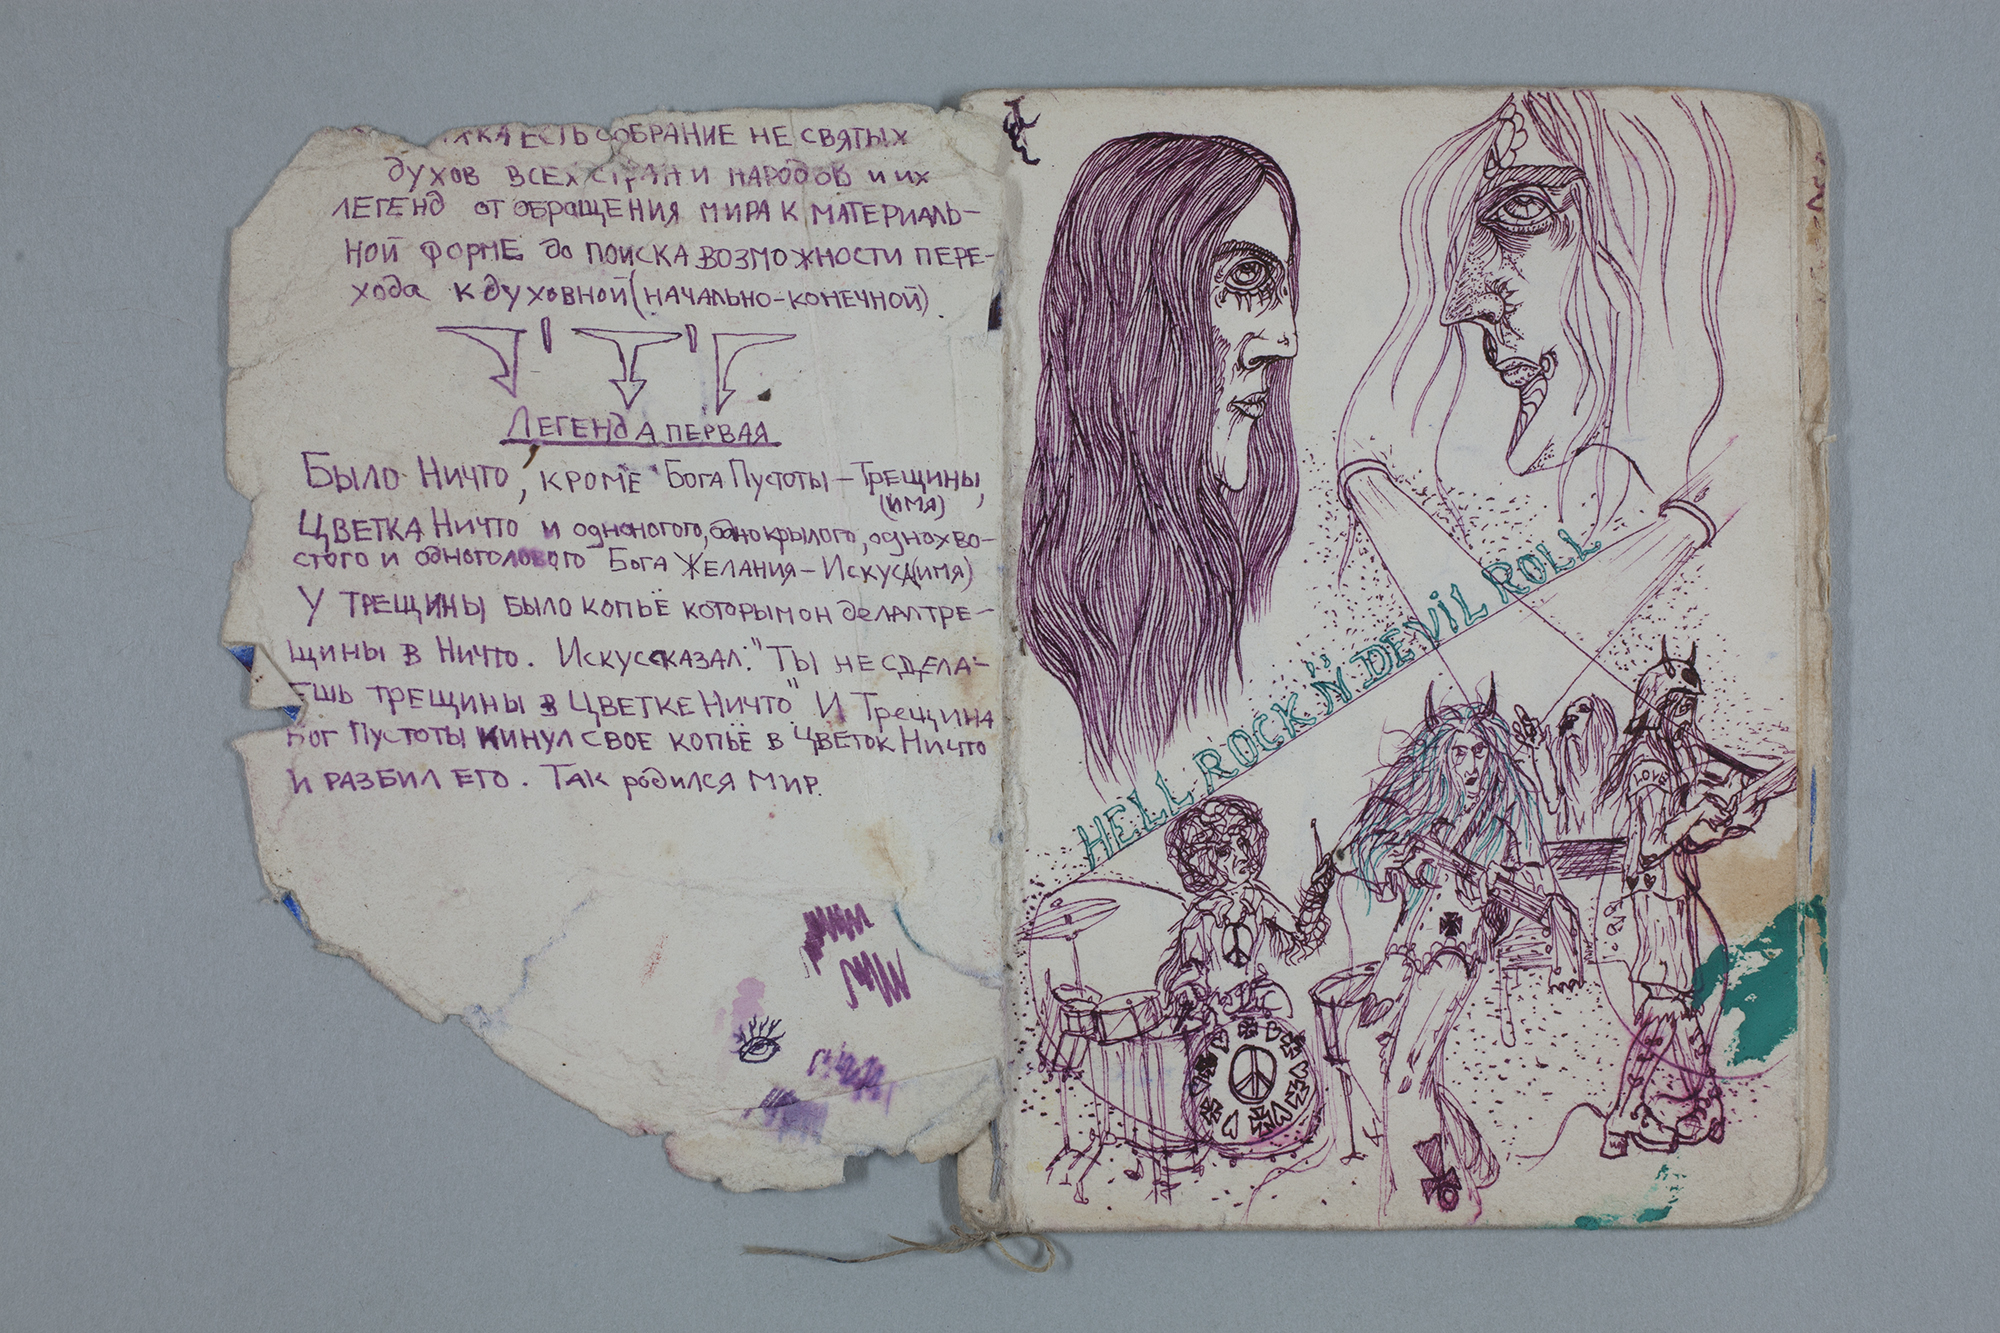 ЕСТЬ СОБРАНИЕ НЕ СВЯТЫХ
ДУХОВ ВСЕХ СТРАН И НАРОДОВ И ИХ
ЛЕГЕНД ОТ ОБРАЩЕНИЯ МИРА К МАТЕРИАЛЬ-
НОЙ ФОРМЕ ДО ПОИСКА ВОЗМОЖНОСТИ ПЕРЕ-
ХОДА К ДУХОВНОЙ (НАЧАЛЬНО-КОНЕЧНОЙ).
ЛЕГЕНДА ПЕРВАЯ
БЫЛО НИЧТО, КРОМЕ БОГА ПУСТОТЫ – ТРЕЩИНЫ,
(ИМЯ)
ЦВЕТКА НИЧТО И ОДНОНОГОГО, ОДНОКРЫЛОГО, ОДНОХВО-
СТОГО И ОДНОГОЛОВОГО БОГА ЖЕЛАНИЯ – ИСКУС (ИМЯ)
У ТРЕЩИНЫ БЫЛО КОПЬЁ КОТОРЫМ ОН ДЕЛАЛ ТРЕ-
ЩИНЫ В НИЧТО. ИСКУС СКАЗАЛ: "ТЫ НЕ СДЕЛА-
ЕШЬ ТРЕЩИНЫ В ЦВЕТКЕ НИЧТО" И ТРЕЩИНА
БОГ ПУСТОТЫ КИНУЛ СВОЕ КОПЬЁ В ЦВЕТОК НИЧТО
И РАЗБИЛ ЕГО. ТАК РОДИЛСЯ МИР.
HELL ROCK 'N DEVIL ROLL
LOVE